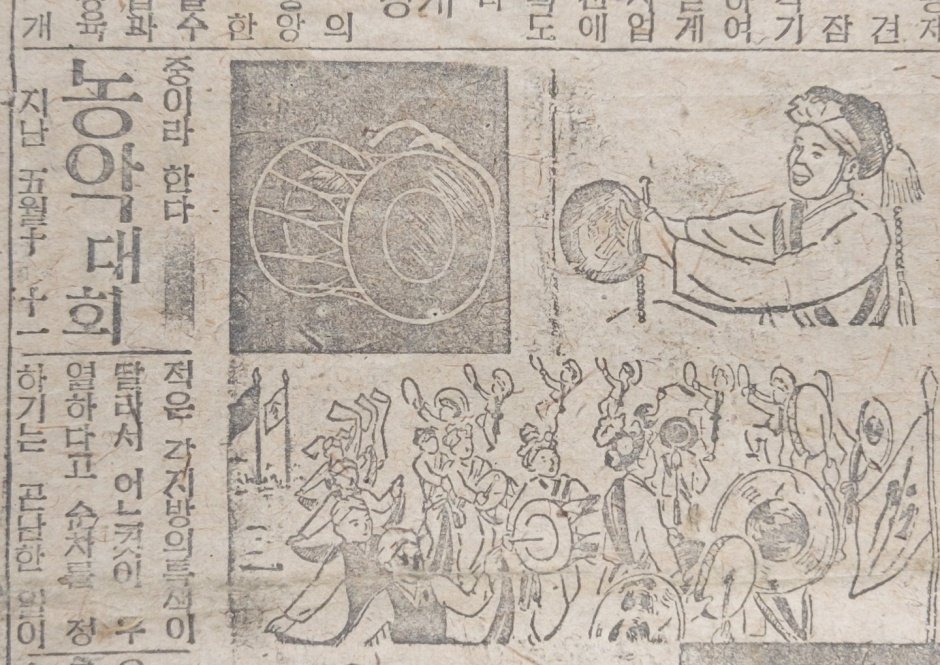 견
잠
기
여
게
입
애
도
의
앙
한
수
과
육
개
중이라 한다
농악대회
지난 五월十 十一
적은 각지방의 특색이
딸려서 어느것이 우
열하다고 순자를 정
하기는 곤난한 일이